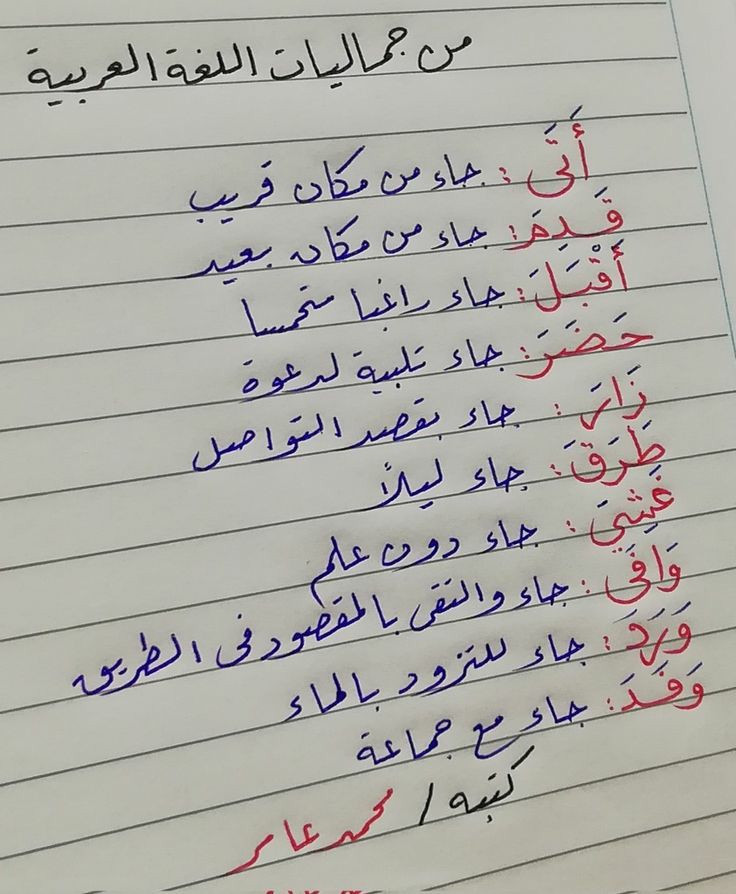 من جماليات اللغة العربية
أَتَى : جاء من مكان قريب
قَدِمَ : جاء من مكان بعيد
أَقْبَلَ : جاء راغبا متحمسا
حَضَرَ : جاء تلبية لدعوة
زَارَ : جاء بقصد التواصل
طَرَقَ : جاء ليلاً
غَشِيَ : جاء دون علم
وَافَى : جاء والتقى بالمقصود في الطريق
وَرَدَ : جاء للتزود بالماء
وَفَدَ : جاء مع جماعة
كتبه / محمد عامر